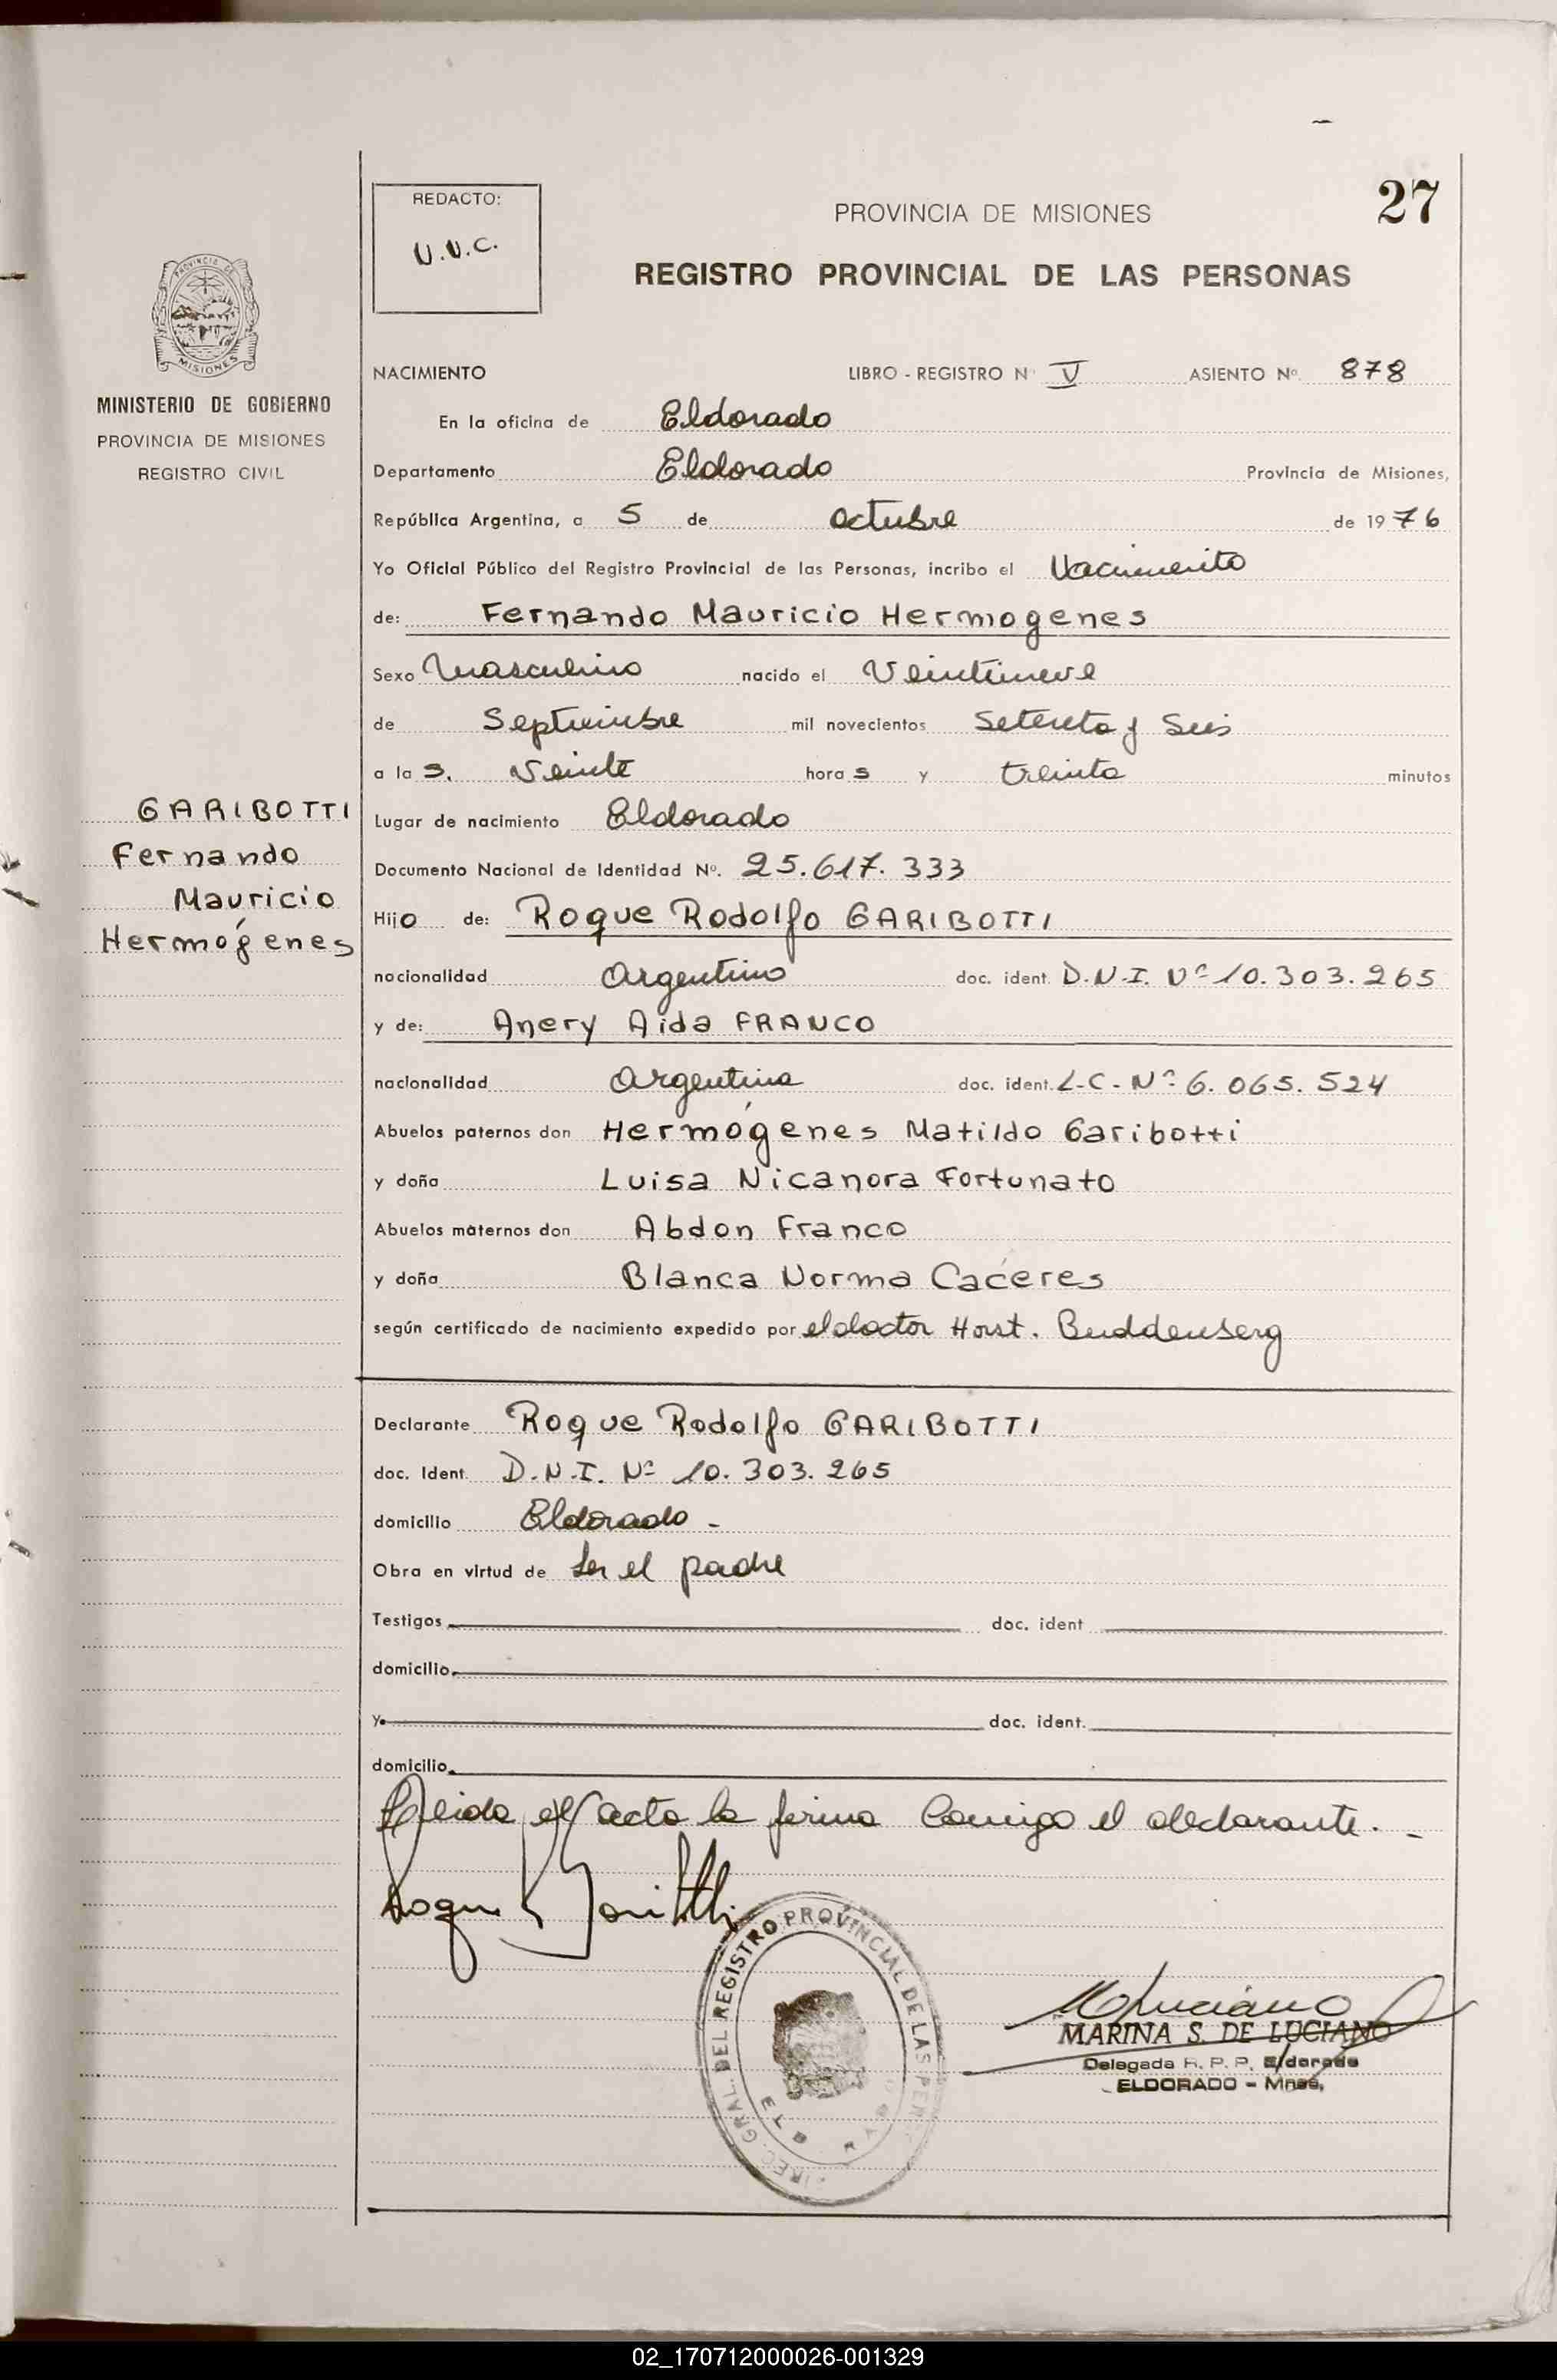 27
REDACTO:
PROVINCIA DE MISIONES
REGISTRO PROVINCIAL DE LAS PERSONAS
PROVINCIA DE
MISIONES
MINISTERIO DE GOBIERNO
PROVINCIA DE MISIONES
REGISTRO CIVIL
GARIBOTTI
Fernando
Mauricio
Hermógenes
NACIMIENTO LIBRO - REGISTRO Nº V ASIENTO Nº 878
En la oficina de Eldorado
Departamento Eldorado Provincia de Misiones,
República Argentina, a 5 de Octubre de 1976
Yo Oficial Público del Registro Provincial de las Personas, incribo el Nacimiento
de: Fernando Mauricio Hermogenes
Sexo Masculino nacido el Veintinueve
de Septiembre mil novecientos Setenta y Seis
a las. Veinte horas y treinta minutos
Lugar de nacimiento Eldorado
Documento Nacional de Identidad Nº. 25.617.333
Hijo de: Roque Rodolfo GARIBOTTI
nacionalidad Argentino doc. ident. D.N.I. Nº 10.303.265
y de: Anery Aida FRANCO
nacionalidad Argentina doc. ident. L-C-Nº 6.065.524
Abuelos paternos don Hermógenes Matildo Garibotti
y doña Luisa Nicanora Fortunato
Abuelos maternos don Abdon Franco
y doña Blanca Norma Caceres
según certificado de nacimiento expedido por el doctor Horst. Buddenberg
Declarante Roque Rodolfo GARIBOTTI
doc. Ident. D.N.I. Nº 10.303.265
domicilio Eldorado -
Obra en virtud de ser el padre
Testigos doc. ident
domicilio
y doc. ident.
domicilio
Leida el acta la firma Conmigo el declarante. -
GRAL. DEL REGISTRO PROVINCIAL DE LAS PER
MARINA S. DE LUCIANO
Delegada R. P. P. Eldorado
ELDORADO - Mnes,
02_170712000026-001329